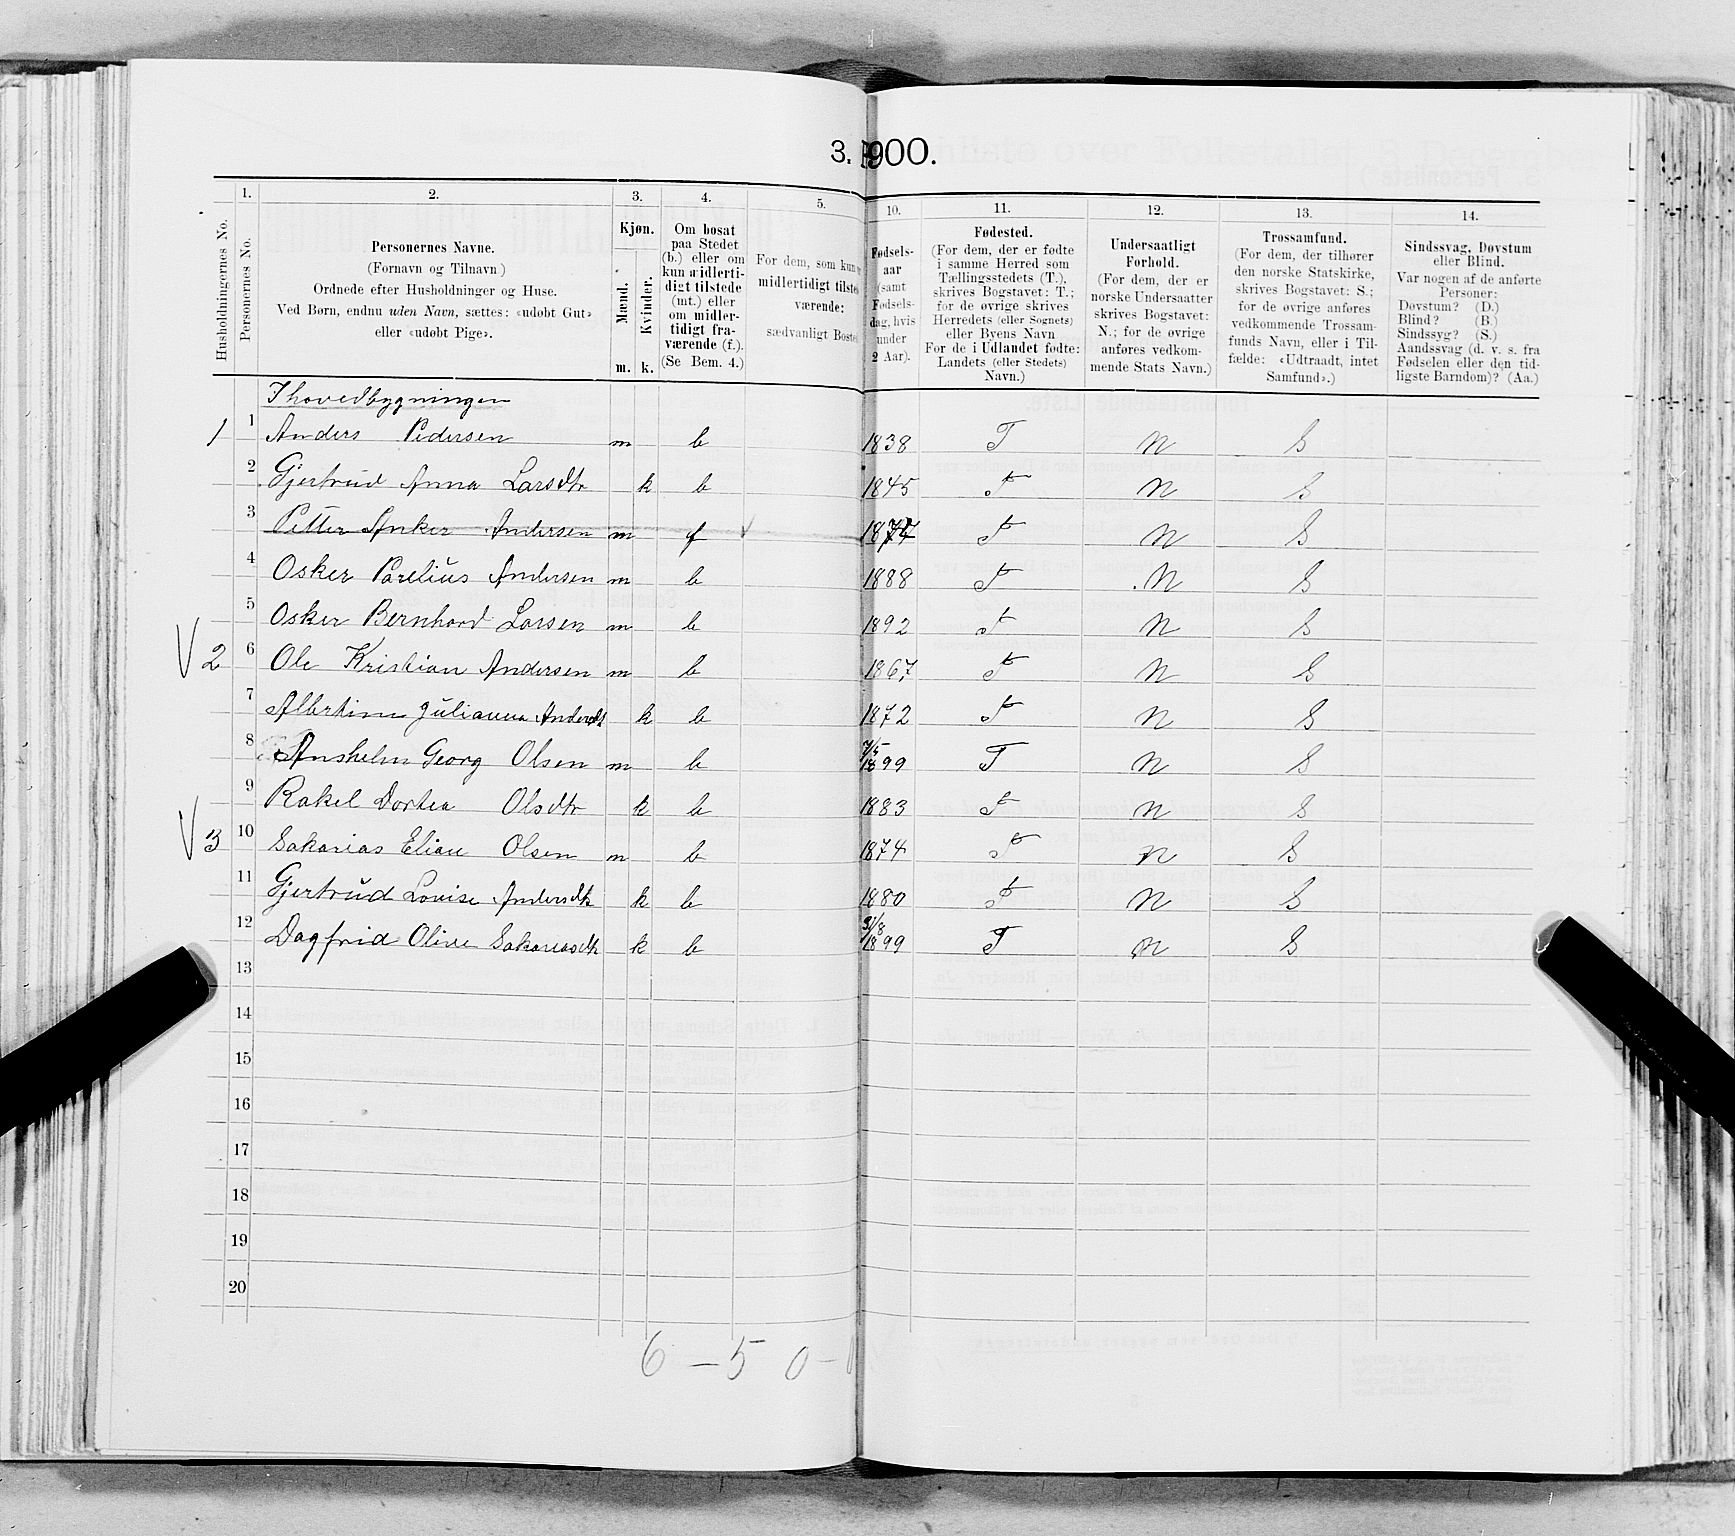 3. 1900.
1. 2. 3. 4. 5. 10. 11. 12. 13. 14.
Husholdningernes No.
Personernes No.
Personernes Navne.
(Fornavn og Tilnavn)
Ordnede efter Husholdninger og Huse.
Ved Børn, endnu uden Navn, sættes: «udøbt Gut»
eller «udøbt Pige».
Kjøn.
Mænd.
Kvinder.
m. k.
Om bosat
paa Stedet
(b.) eller om
kun midlerti-
digt tilstede
(mt.) eller
om midler-
tidigt fra-
værende (f.).
(Se Bem. 4.)
For dem, som kun
midlertidigt tilste
værende:
sædvanligt Boste
Fødsels-
aar
(samt
Fødsels-
dag, hvis
under
2 Aar).
Fødested.
(For dem, der er fødte
i samme Herred som
Tællingsstedets (T.),
skrives Bogstavet: T.;
for de øvrige skrives
Herredets (eller Sognets)
eller Byens Navn
For de i Udlandet fødte:
Landets (eller Stedets)
Navn.)
Undersaatligt
Forhold.
(For dem, der er
norske Undersaatter
skrives Bogstavet:
N.; for de øvrige
anføres vedkom-
mende Stats Navn.)
Trossamfund.
(For dem, der tilhører
den norske Statskirke,
skrives Bogstavet: S.;
for de øvrige anføres
vedkommende Trossam-
funds Navn, eller i Til-
fælde: «Udtraadt, intet
Samfund».)
Sindssvag, Døvstum
eller Blind.
Var nogen af de anførte
Personer:
Døvstum? (D.)
Blind? (B.)
Sindssyg? (S.)
Aandssvag (d. v. s. fra
Fødselen eller den tid-
ligste Barndom)? (Aa.)
I hovedbygningen
1 1 Anders Pedersen m b 1838 T N S
2 Gjertrud Anna Larsdtr k b 1845 T N S
3 Petter Anker Andersen m f 1877 T N S
4 Osker Parelius Andersen m b 1888 T N S
5 Osker Bernhard Larsen m b 1892 T N S
2 6 Ole Kristian Andersen m b 1867 T N S
7 Albertine Julianna Andersdt k b 1872 T N S
8 Anshelm Georg Olsen m b 7/5 1899 T N S
9 Rakel Dortea Olsdtr k b 1883 T N S
3 10 Sakarias Elian Olsen m b 1874 T N S
11 Gjertrud Lovise Andersdtr k b 1880 T N S
12 Dagfrid Olive Sakariasdtr k b 31/8 1899 T N S
13
14
15
16
17
18
19
20
6 – 5 0 –